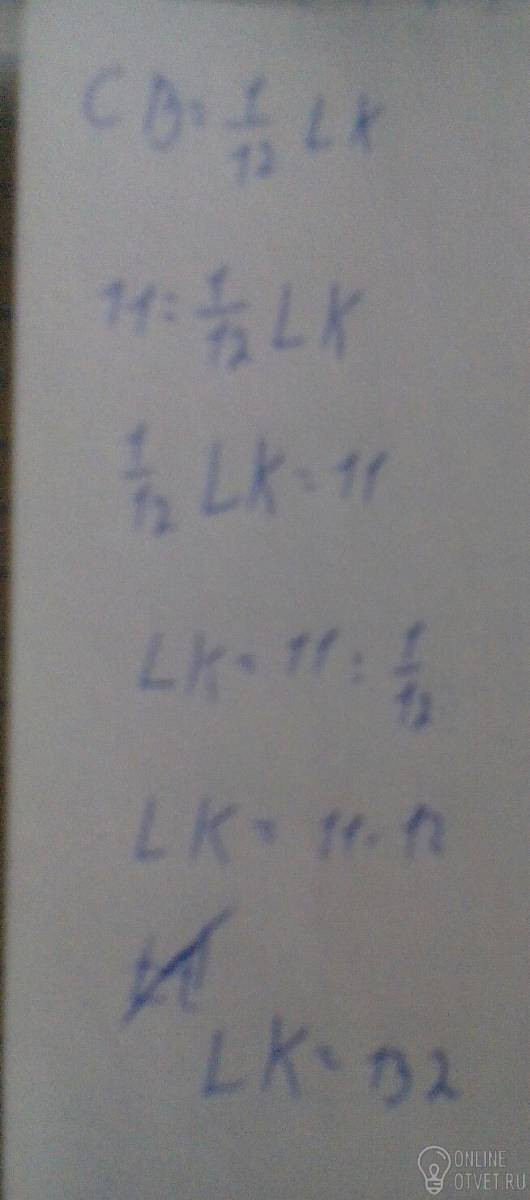 CB = 1/12 LK
11 = 1/12 LK
1/12 LK = 11
LK = 11 : 1/12
LK = 11 · 12
LK = 132
ONLINE
OTVET.RU